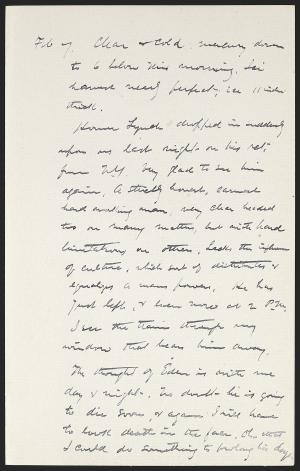 Feb 7. Clear & Cold, mercury down
to 6 below this morning. Ice
harvest nearly perfect; ice 11 inches
thick.
Homer Lynch dropped in suddenly
upon us last night on his ret.
from N.Y. Very glad to see him
again. A strictly honest, earnest
hard working man, very clear headed
too on many matters, but with hard
limitations on others. Lacks the influence
of culture, which sort of distributes &
equalizes a mans powers. He has
just left, & even now at 2 P.M.
I see the train through my
window that bears him away.
The thought of Eden is with me
day & night. No doubt he is going
to die soon, & again I will have
to look death in the face. Oh that
I could do something to prolong his days